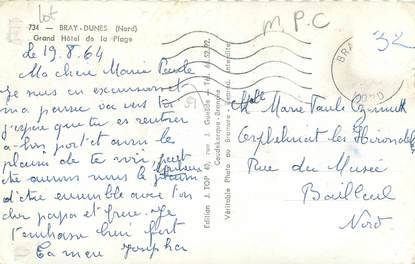 lot
734 - BRAY-DUNES (Nord)
Grand Hôtel de la Plage
M.P.C
le 19.8.64
Ma chère Marie Paule
Je suis en excursion et
ma pensée va vers toi
j'espère que tu es rentrée
à bon port et aurai le
plaisir de te voir
aurons nous le plaisir
d'être ensemble avec ton
cher papa et frère. Je
t'embrasse bien fort
Ta mère
Edition J. TOP 40, rue J. Guesde - Tél. 66.52.02
Coudekerque-Branche
Véritable Photo au Bromure
BRA
Melle Marie Paule
Orphelinat les Hirondelles
Rue du Musée
Bailleul
Nord